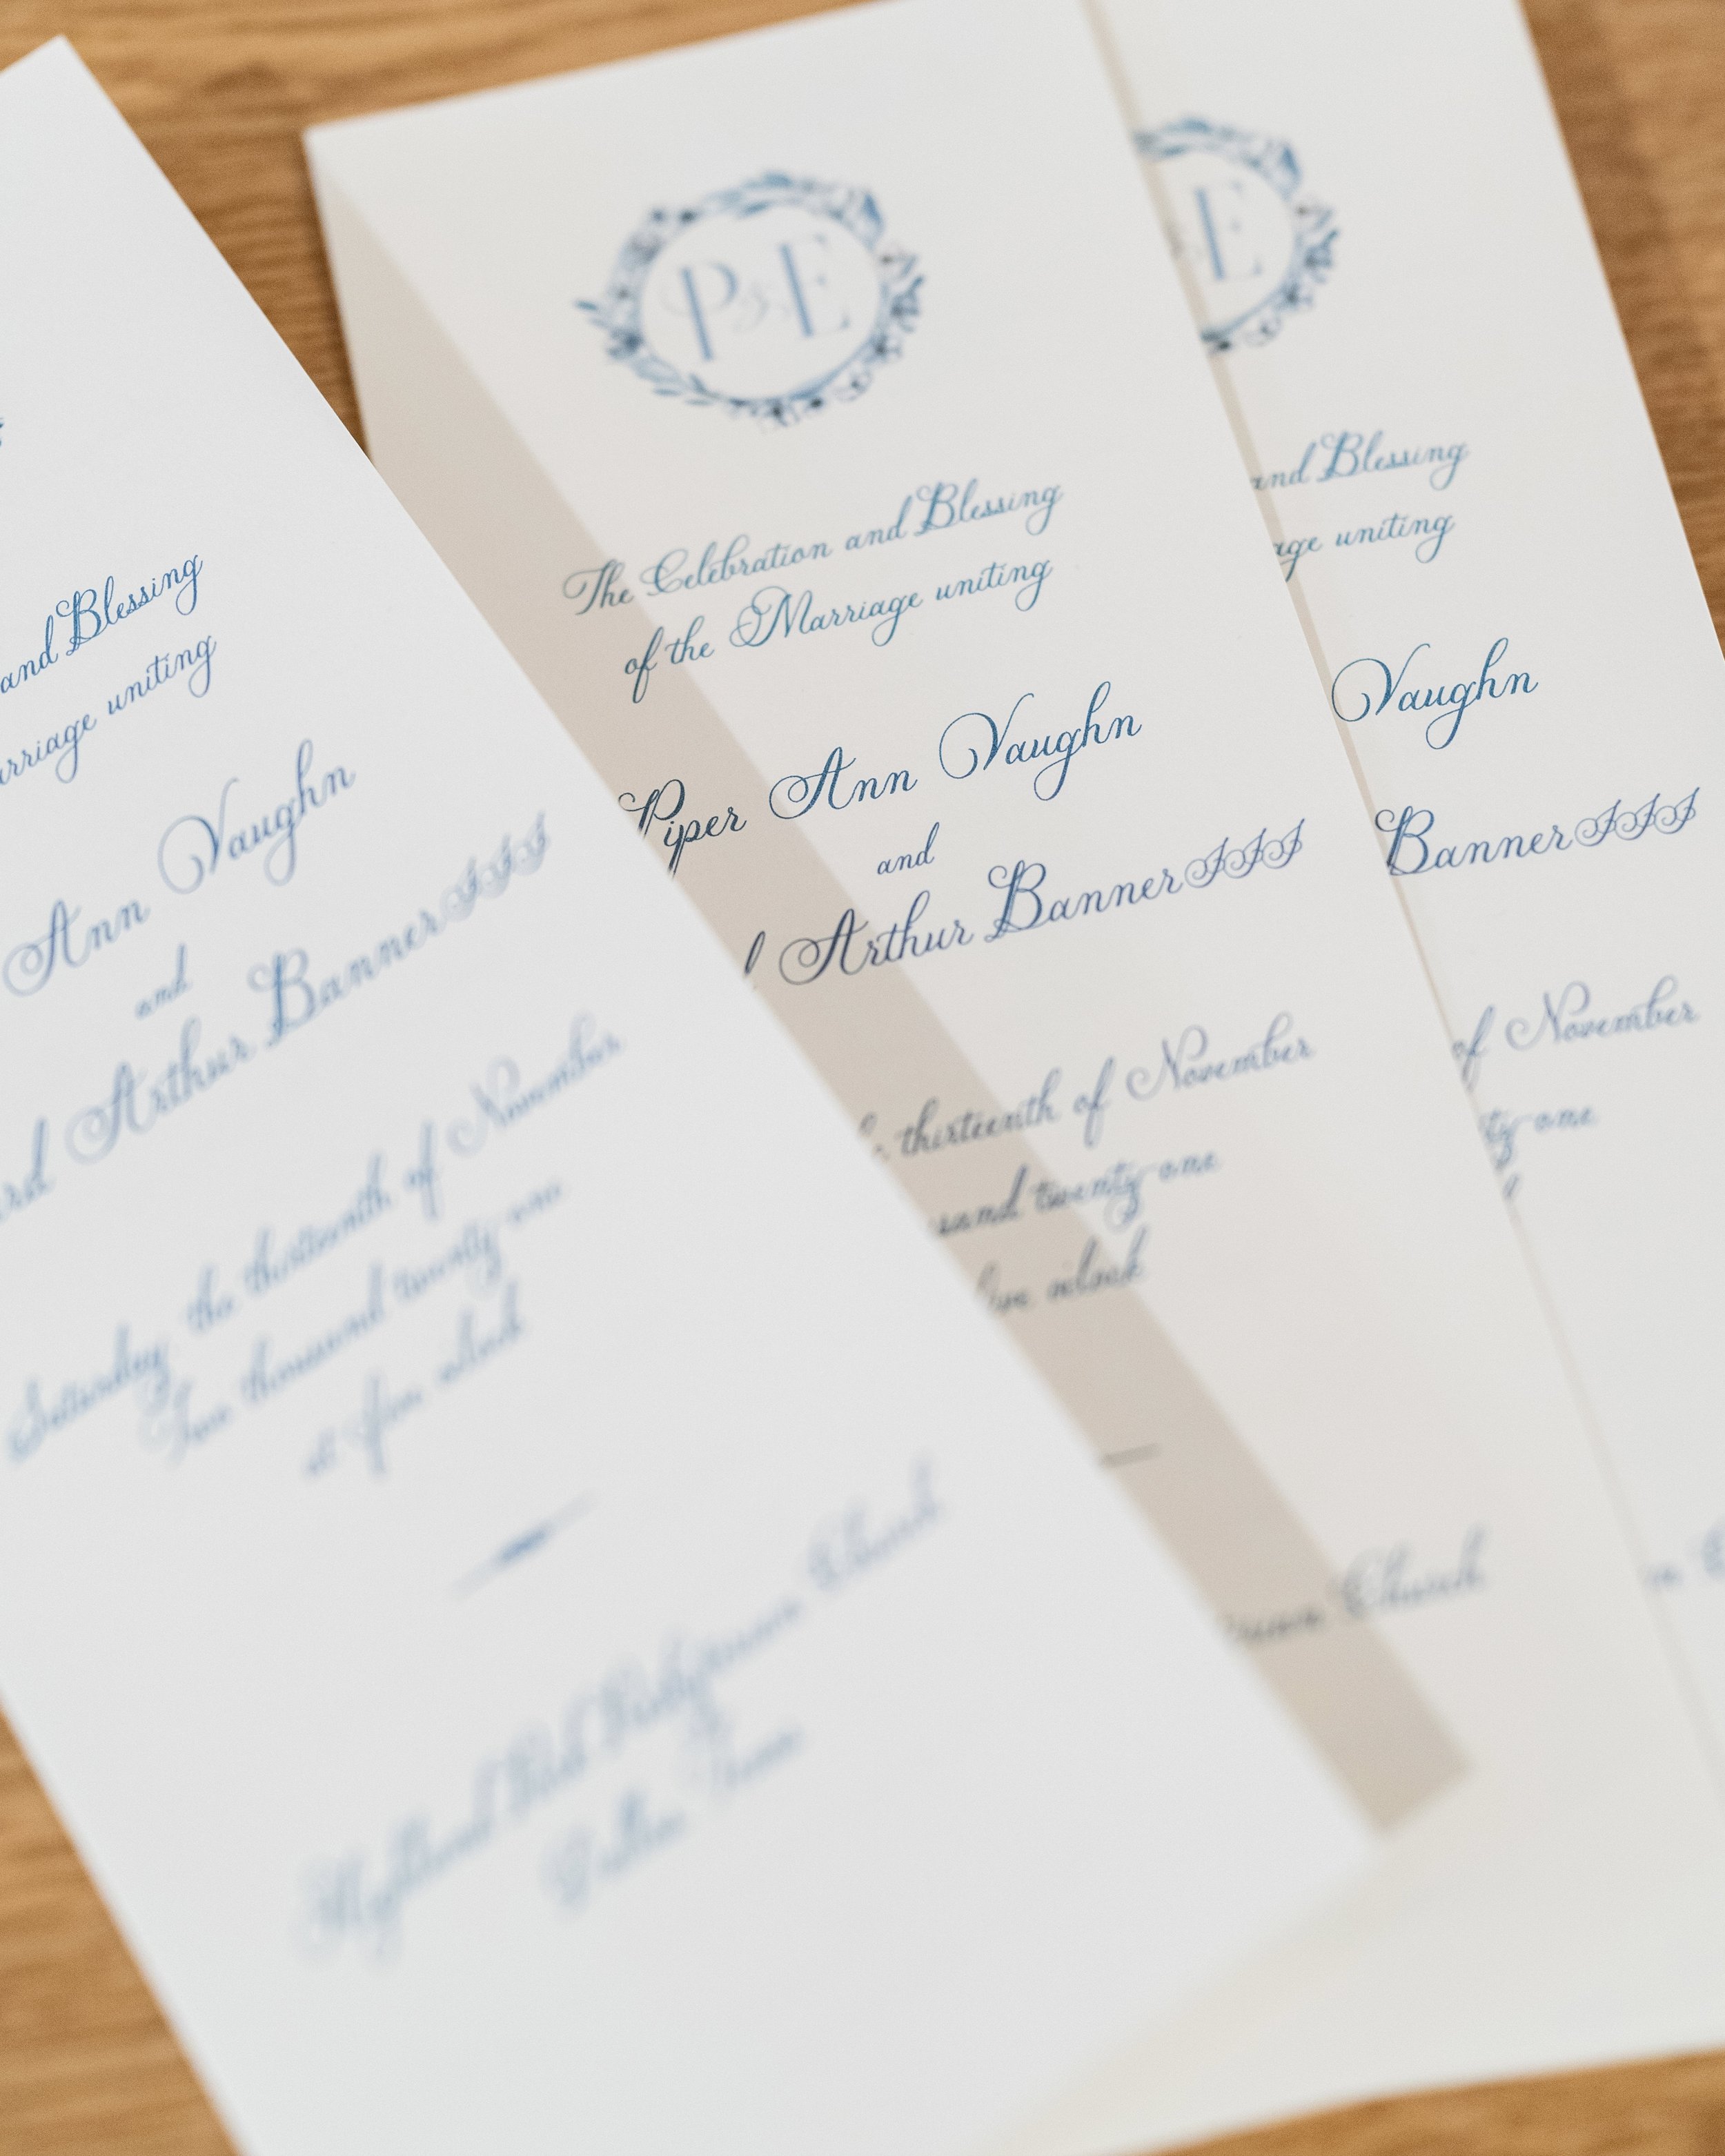 and Blessing
arriage uniting
Ann Vaughn
and
Arthur Banner III
Saturday the thirteenth of November
Two thousand twenty-one
at five oclock
Highland Park Presbyterian Church
Dallas, Texas
P & E
The Celebration and Blessing
of the Marriage uniting
Piper Ann Vaughn
and
Arthur Banner III
thirteenth of November
twenty-one
five oclock
Church
E
and Blessing
uniting
Vaughn
Banner III
of November
one